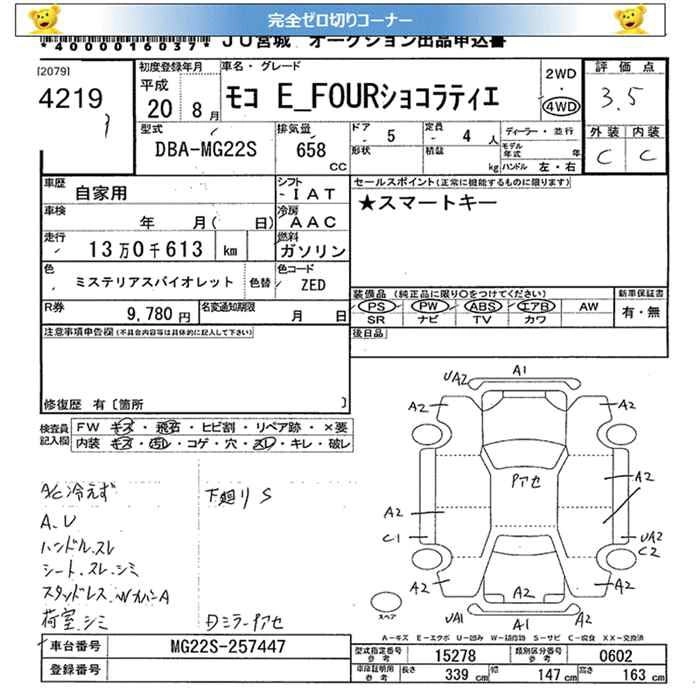 完全ゼロ切りコーナー
*4000016037* JU宮城 オークション出品申込書
[2079]
4219
初度登録年月
平成
20 8月
車名・グレード
モコ E_FOURショコラティエ
2WD
・
4WD
評価点
3.5
外装 内装
C C
型式
DBA-MG22S
排気量
658 CC
ドア - 5
定員 - 4 人
形状
積載 kg
ディーラー・並行
モデル年式 年
ハンドル 左・右
車歴 自家用
シフト - IAT
車検 年 月( 日)
冷房 AAC
走行 13万0千613 km
燃料 ガソリン
色 ミステリアスバイオレット 色替
色コード ZED
R券 9,780円
名変通知期限 月 日
セールスポイント(正常に機能するものに限ります)
★スマートキー
装備品 (純正品に限り〇をつけてください)
PS PW ABS エアB AW
SR ナビ TV カワ
新車保証書
有・無
後日品
注意事項申告欄(不具合内容等は具体的に記入して下さい)
修復歴 有〔箇所 〕
検査員記入欄
FW キズ・飛石・ヒビ割・リペア跡・×要
内装 キズ・汚レ・コゲ・穴・スレ・キレ・破レ
A/C冷えず
A.U
ハンドル.スレ
シート.スレ.シミ
スタッドレス.WカバーA
荷室.シミ
下廻り S
Dミラーアセ
UA2 A1
A2 A2
Pアセ
A2
A2
C1
UA2
C2
A2 A2 A2
UA1 A1 A2
スペア
A-キズ E-エクボ U-凹み W-補修跡 S-サビ C-腐食 XX-交換済
車台番号 MG22S-257447
登録番号
型式指定番号 参考 15278
類別区分番号 参考 0602
車庫証明用 参考 長さ 339 cm 幅 147 cm 高さ 163 cm